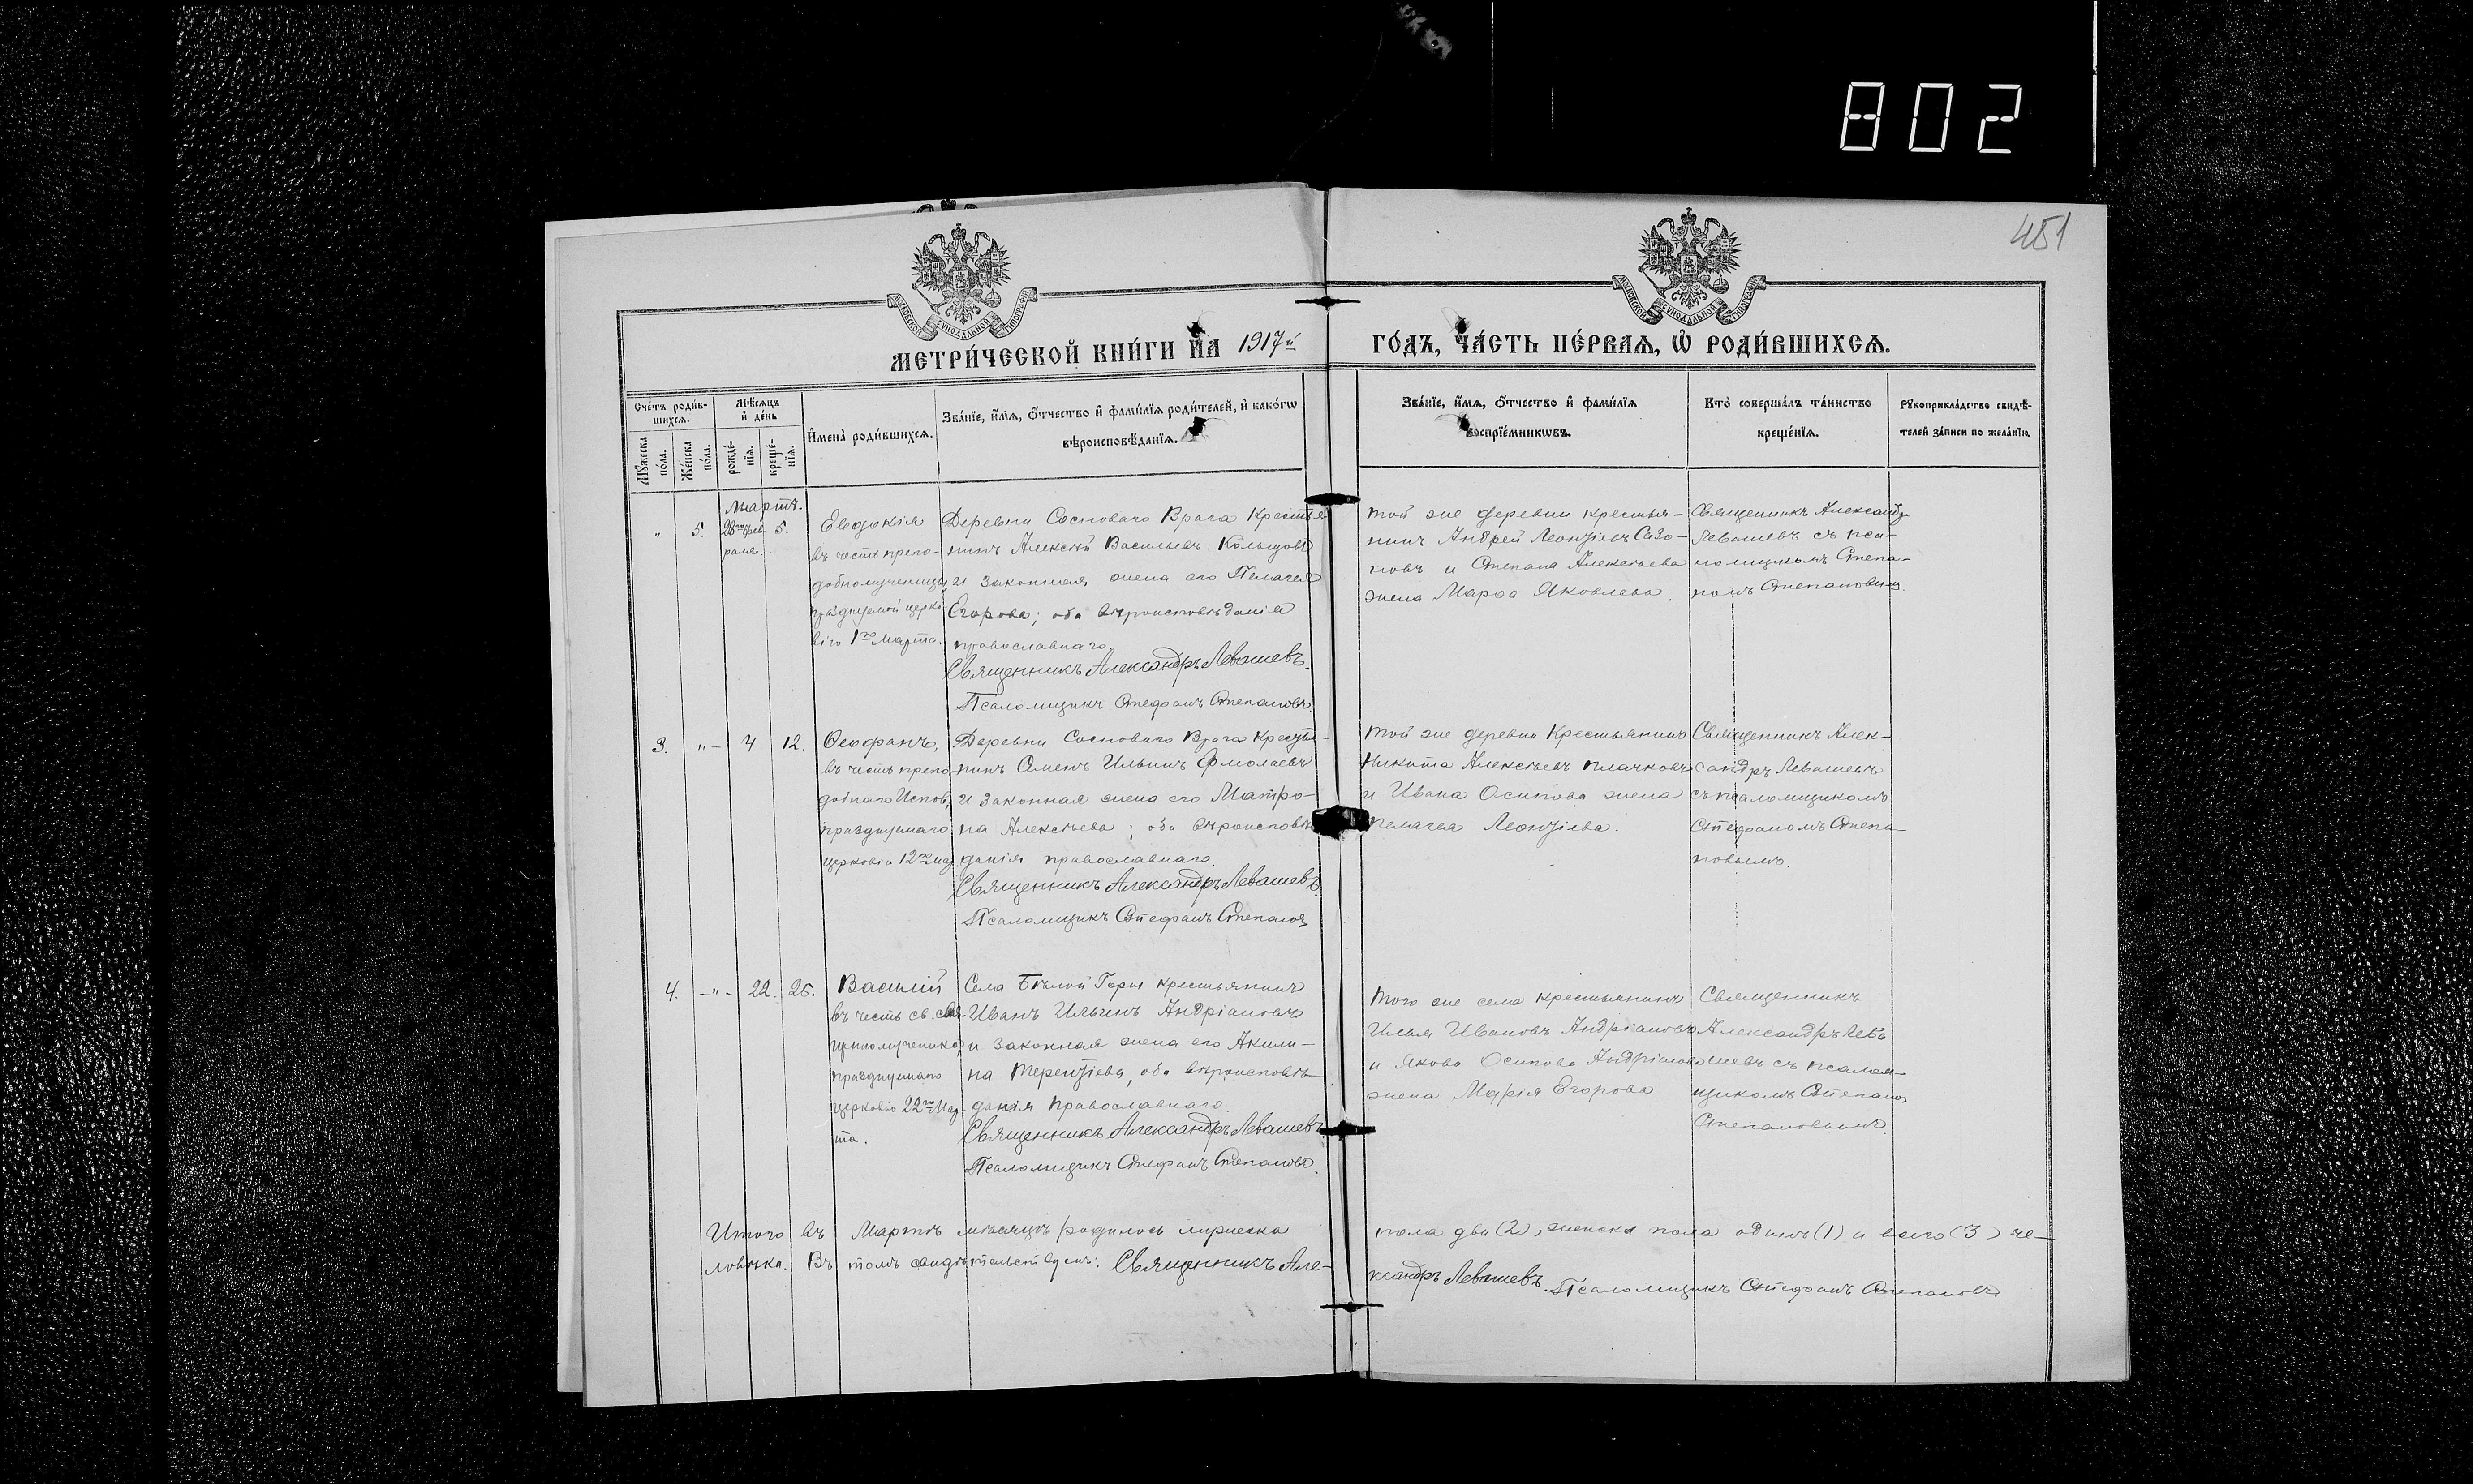 802
451
МОСКОВСКОЙ СѴНОДАЛЬНОЙ ТИПОГРАФІИ
МОСКОВСКОЙ СѴНОДАЛЬНОЙ ТИПОГРАФІИ
МЕТРИ́ЧЕСКОЙ КНИ́ГИ НА 1917й ГО́ДЪ, ЧА́СТЬ ПЕ́РВАЯ, Ѡ РОДИ́ВШИХСЯ.
Сче́тъ роди́в-
шихся.
Мѣ́сяцъ
и де́нь
Мꙋ́жеска
по́ла.
Же́нска
по́ла.
рожде́-
нїя.
креще́-
нїя.
Имена̀ роди́вшихся.
Зва́нїе, и́мя, о́тчество и фами́лїя роди́телей, и како́гѡ
вѣроисповѣ́данїя.
Зва́нїе, и́мя, о́тчество и фами́лїя
воспрїе́мникѡвъ.
Кто̀ соверша́лъ та́инство
креще́нїя.
Рꙋкоприкла́дство свидѣ́-
телей за́писи по жела́нїю.
Марта.
" 5. 28го фев 5.
раля.
Евдокія
въ честь препо-
добномученицы,
празднуемой церко-
вію 1го Марта.
Деревни Сосноваго Врага Крестья
нинъ Алексѣй Васильевъ Кольцовъ
и законная жена его Пелагея
Егорова; оба вѣроисповѣданія
православнаго
Священникъ Александръ Левашевъ.
Псаломщикъ Стефанъ Степановъ.
Той же деревни крестья-
нинъ Андрей Леонтіевъ Сазо-
новъ и Степана Алексѣева
жена Марѳа Яковлева.
Священникъ Александръ
Левашевъ съ пса-
ломщикомъ Степа-
номъ Степановымъ.
3. "- 4 12.
Ѳеофанъ,
въ честь препо-
добнаго Испов,
празднуемаго
церковію 12го Мар.
Деревни Сосноваго Врага Крестья-
нинъ Семенъ Ильинъ Ермолаевъ
и законная жена его Матро-
на Алексѣева; оба вѣроисповѣ
данія православнаго.
Священникъ Александръ Левашевъ
Псаломщикъ Стефанъ Степановъ
Той же деревни Крестьянинъ
Никита Алексѣевъ Плачковъ
и Ивана Осипова жена
Пелагея Леонтіева.
Священникъ Алек-
сандръ Левашевъ
съ псаломщикомъ
Стефаномъ Степа-
новымъ.
4. -"- 22. 25.
Василій
въ честь св. свя-
щенномученика,
празднуемаго
церковію 22го Мар
та.
Села Бѣлой Горы крестьянинъ
Иванъ Ильинъ Андріановъ
и законная жена его Акили-
на Терентіева, оба вѣроисповѣ-
данія православнаго.
Священникъ Александръ Левашевъ
Псаломщикъ Стефанъ Степановъ.
Того же села крестьянинъ
Илья Ивановъ Андріановъ
и Якова Осипова Андріанова
жена Марія Егорова
Священникъ
Александръ Лева
шевъ съ псалом-
щикомъ Стефаномъ
Степановымъ.
Итого въ Мартѣ мѣсяцѣ родилось мужеска пола два (2), женска пола одинъ (1) и всего (3) че-
ловѣка. Въ томъ свидѣтельствуемъ: Священникъ Але-
ксандръ Левашевъ. Псаломщикъ Стефанъ Степановъ.